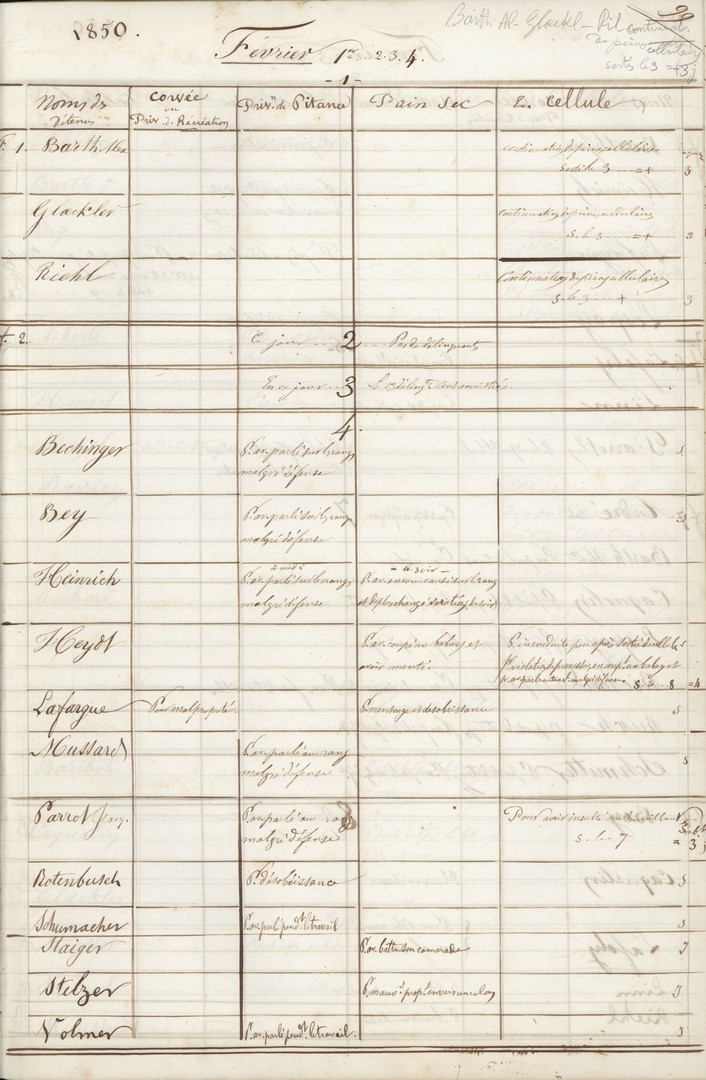 1850.
Février 1er 2. 3. 4.
Barth Al- Glaekl- Ril- continuat.
de peine cellulaire
sortis le 3 = +3 j
- 1 -
Noms des Détenus
Corvée ou Priv. de Récréation
Priv. de Pitance
Pain Sec
En cellule
F. 1. Barth. Alex
continuation de peine cellulaire
sorti le 3 = +
3
Glaekler
continuation de peine cellulaire
S. le 3 = +
3
Riehl
Continuation de peine cellulaire
S. le 3 +
3
f. 2. Ce jour 2 Pas de délinquants
En ce jour 3
4.
Bechinger P. av. parlé sur le rang
malgré défense
s
Bey P. av. parlé sur le rang
malgré défense
Heinrich
à midi
P. av. parlé sur le rang
malgré défense
- le soir -
P. av. encore causé sur le rang
Heydt
P. av. coupé un balay et
avoir menti.
S. 4 .. 8 = 4
Lafargue Pour malpropreté. P. mensonge et désobéissance s
Mussard P. av. parlé au rang
malgré défense
s
Parrot Jacq. P. av. parlé au rang
malgré défense
8
Pour avoir insulté un surveillant
S. le 7
= 3 j
Rotenbusch P. désobéissance s
Schumacher P. av. parlé pendt. le travail s
Staiger P. av. battu son camarade J
Stelzer P. mauvs. props. envers un colon J
Volmer P. av. parlé pendt. le travail. J